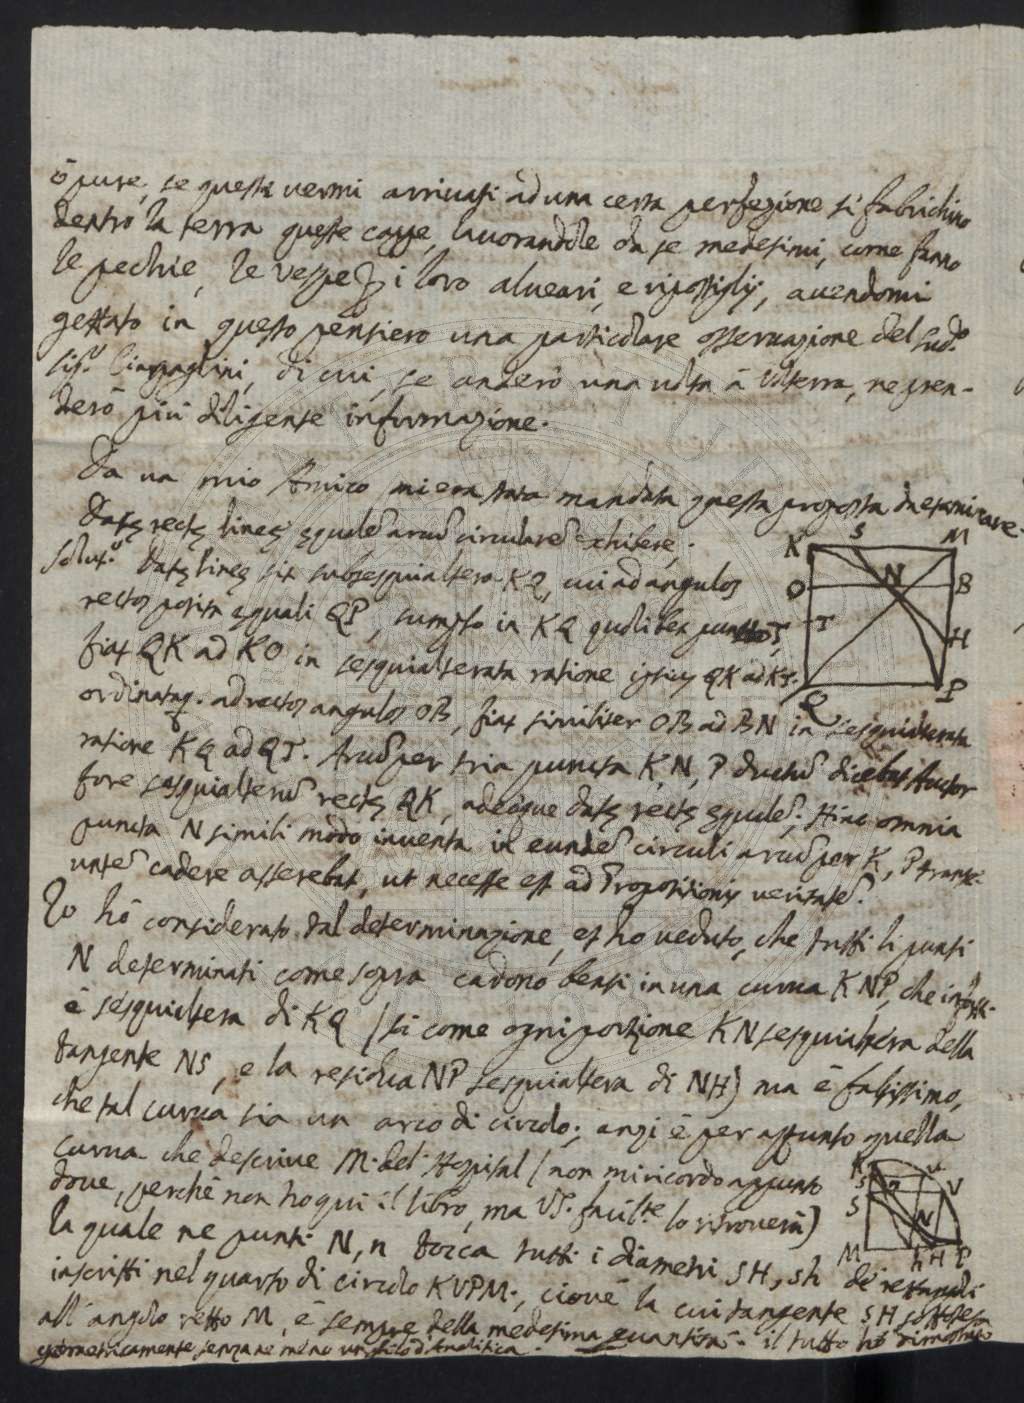 ò pure, se questi vermi arrivati ad una certa perfezione si fabrichino
dentro la terra queste casse, lavorandole da se medesimi, come fanno
le pechie, le vespe i loro alveari, e ripostiglij, avendomi
gettato in questo pensiero una particolare osservazione del Sud.º
Sig.r Ciappaglini, di cui, se anderò una volta à Volterra, ne pren-
derò più diligente informazione.
Da un mio Amico mi era stata mandata questa proposta da esaminare.
Datę rectę lineę ęqualē arcū circularē exhibere.
Solut.º Datę lineę sit subsesquialtera KQ, cui ad angulos
rectos posita ęquali QP, sumpto in KQ quolibet puncto T,
fiat QK ad KO in sesquialterata ratione ipsius QK ad KT.
ordinataq. ad rectos angulos OB, fiat similiter OB ad BN in sesquialterata
ratione KQ ad QT. Arcū per tria puncta K, N, P ductū dicebat Auctor
fore sesquialterū rectę QK, adeoque datę rectę ęqualē; Hinc omnia
puncta N simili modo inventa in eundē circuli arcū per K, P transe-
untē cadere asserebat, ut necesse est ad Propositionis veritatē.
Io hò considerato tal determinazione, et ho veduto, che tutti li punti
N determinati come sopra cadono bensi in una curva KNP, che in fatti
è sesquialtera di KQ (si come ogni porzione KN sesquialtera della
tangente NS, e la residua NP sesquialtera di NH) ma è falsissimo,
che tal curva sia un arco di circolo; anzi è per appunto quella
curva che descrive M. del Hospital (non mi ricordo appunto
dove, perchè non ho qui il libro, ma VS. facil.te lo ritroverà)
la quale ne punti N, n tocca tutti i diametri SH, sh de rettangoli
inscritti nel quarto di circolo KVPM, cioè la cui tangente SH sottesa
all' angolo retto M, è sempre della medesima quantità. il tutto hò dimostrato
geometricamente senza ne meno un filo d'Analitica.
K S M
O N B
T H
Q P
K u
s n V
S N
M h H P